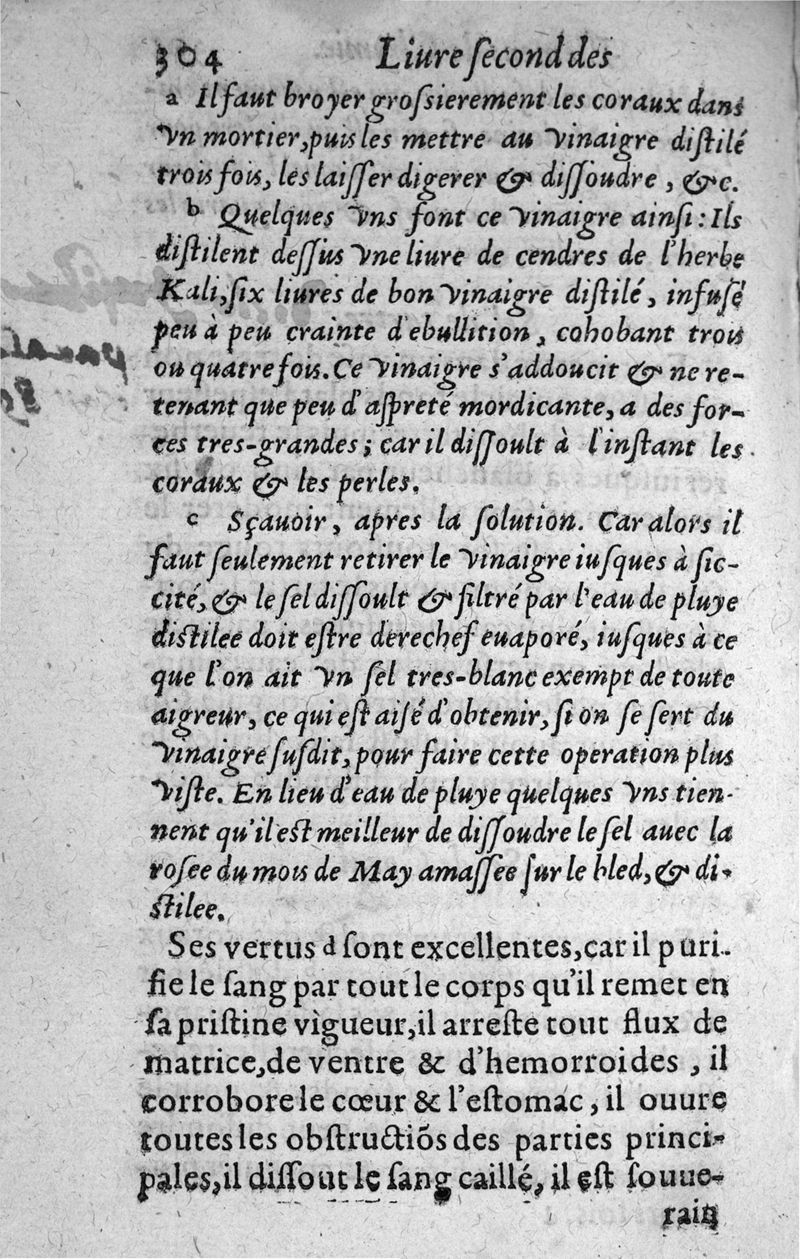 304 Liure ſecond des
a Il faut broyer groſsierement les coraux dans
vn mortier, puis les mettre au vinaigre diſtilé
trois fois, les laiſſer digerer & diſſoudre, &c.
b Quelques vns font ce vinaigre ainſi: Ils
diſtilent deſſus vne liure de cendres de l'herbe
Kali, ſix liures de bon vinaigre diſtilé, infuſé
peu à peu crainte d'ebullition, cohobant trois
ou quatre fois. Ce vinaigre s'addoucit & ne re-
tenant que peu d'aſpreté mordicante, a des for-
ces tres-grandes; car il diſſoult à l'inſtant les
coraux & les perles.
c Sçauoir, apres la ſolution. Car alors il
faut ſeulement retirer le vinaigre iuſques à ſic-
cité, & le ſel diſſoult & filtré par l'eau de pluye
diſtilee doit eſtre derechef euaporé, iuſques à ce
que l'on ait vn ſel tres-blanc exempt de toute
aigreur, ce qui eſt aiſé d'obtenir, ſi on ſe ſert du
vinaigre ſuſdit, pour faire cette operation plus
viſte. En lieu d'eau de pluye quelques vns tien-
nent qu'il eſt meilleur de diſſoudre le ſel auec la
roſee du mois de May amaſſée ſur le bled, & di-
ſtilee.
Ses vertus d ſont excellentes, car il puri-
fie le ſang par tout le corps qu'il remet en
ſa priſtine vigueur, il arreſte tout flux de
matrice, de ventre & d'hemorroides, il
corrobore le cœur & l'eſtomac, il ouure
toutes les obſtructiõs des parties princi-
pales, il diſſout le ſang caillé, il eſt ſouue-
rain